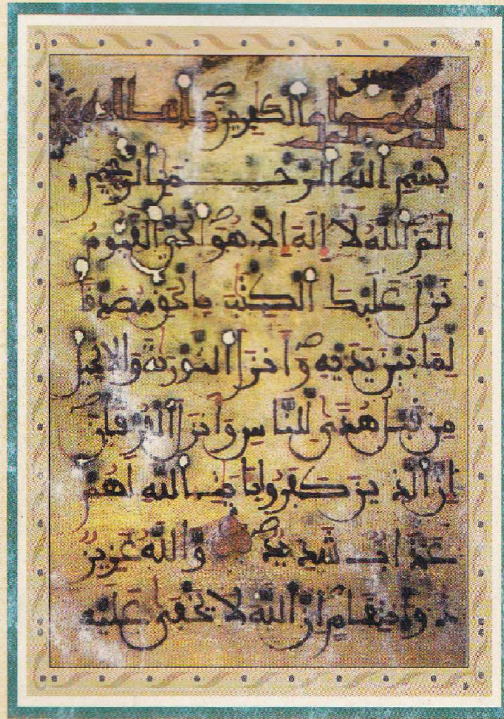 بِسْمِ اللَّهِ الرَّحْمَنِ الرَّحِيمِ
الم اللَّهُ لَا إِلَهَ إِلَّا هُوَ الْحَيُّ الْقَيُّومُ
نَزَّلَ عَلَيْكَ الْكِتَبَ بِالْحَقِّ مُصَدِّقًا
لِمَا بَيْنَ يَدَيْهِ وَأَنْزَلَ التَّوْرَيةَ وَالْإِنْجِيلَ
مِنْ قَبْلُ هُدًى لِلنَّاسِ وَأَنْزَلَ الْفُرْقَانَ
إِنَّ الَّذِينَ كَفَرُوا بِآيَتِ اللَّهِ لَهُمْ
عَذَابٌ شَدِيدٌ وَاللَّهُ عَزِيزٌ
ذُو انْتِقَامٍ إِنَّ اللَّهَ لَا يَخْفَى عَلَيْهِ